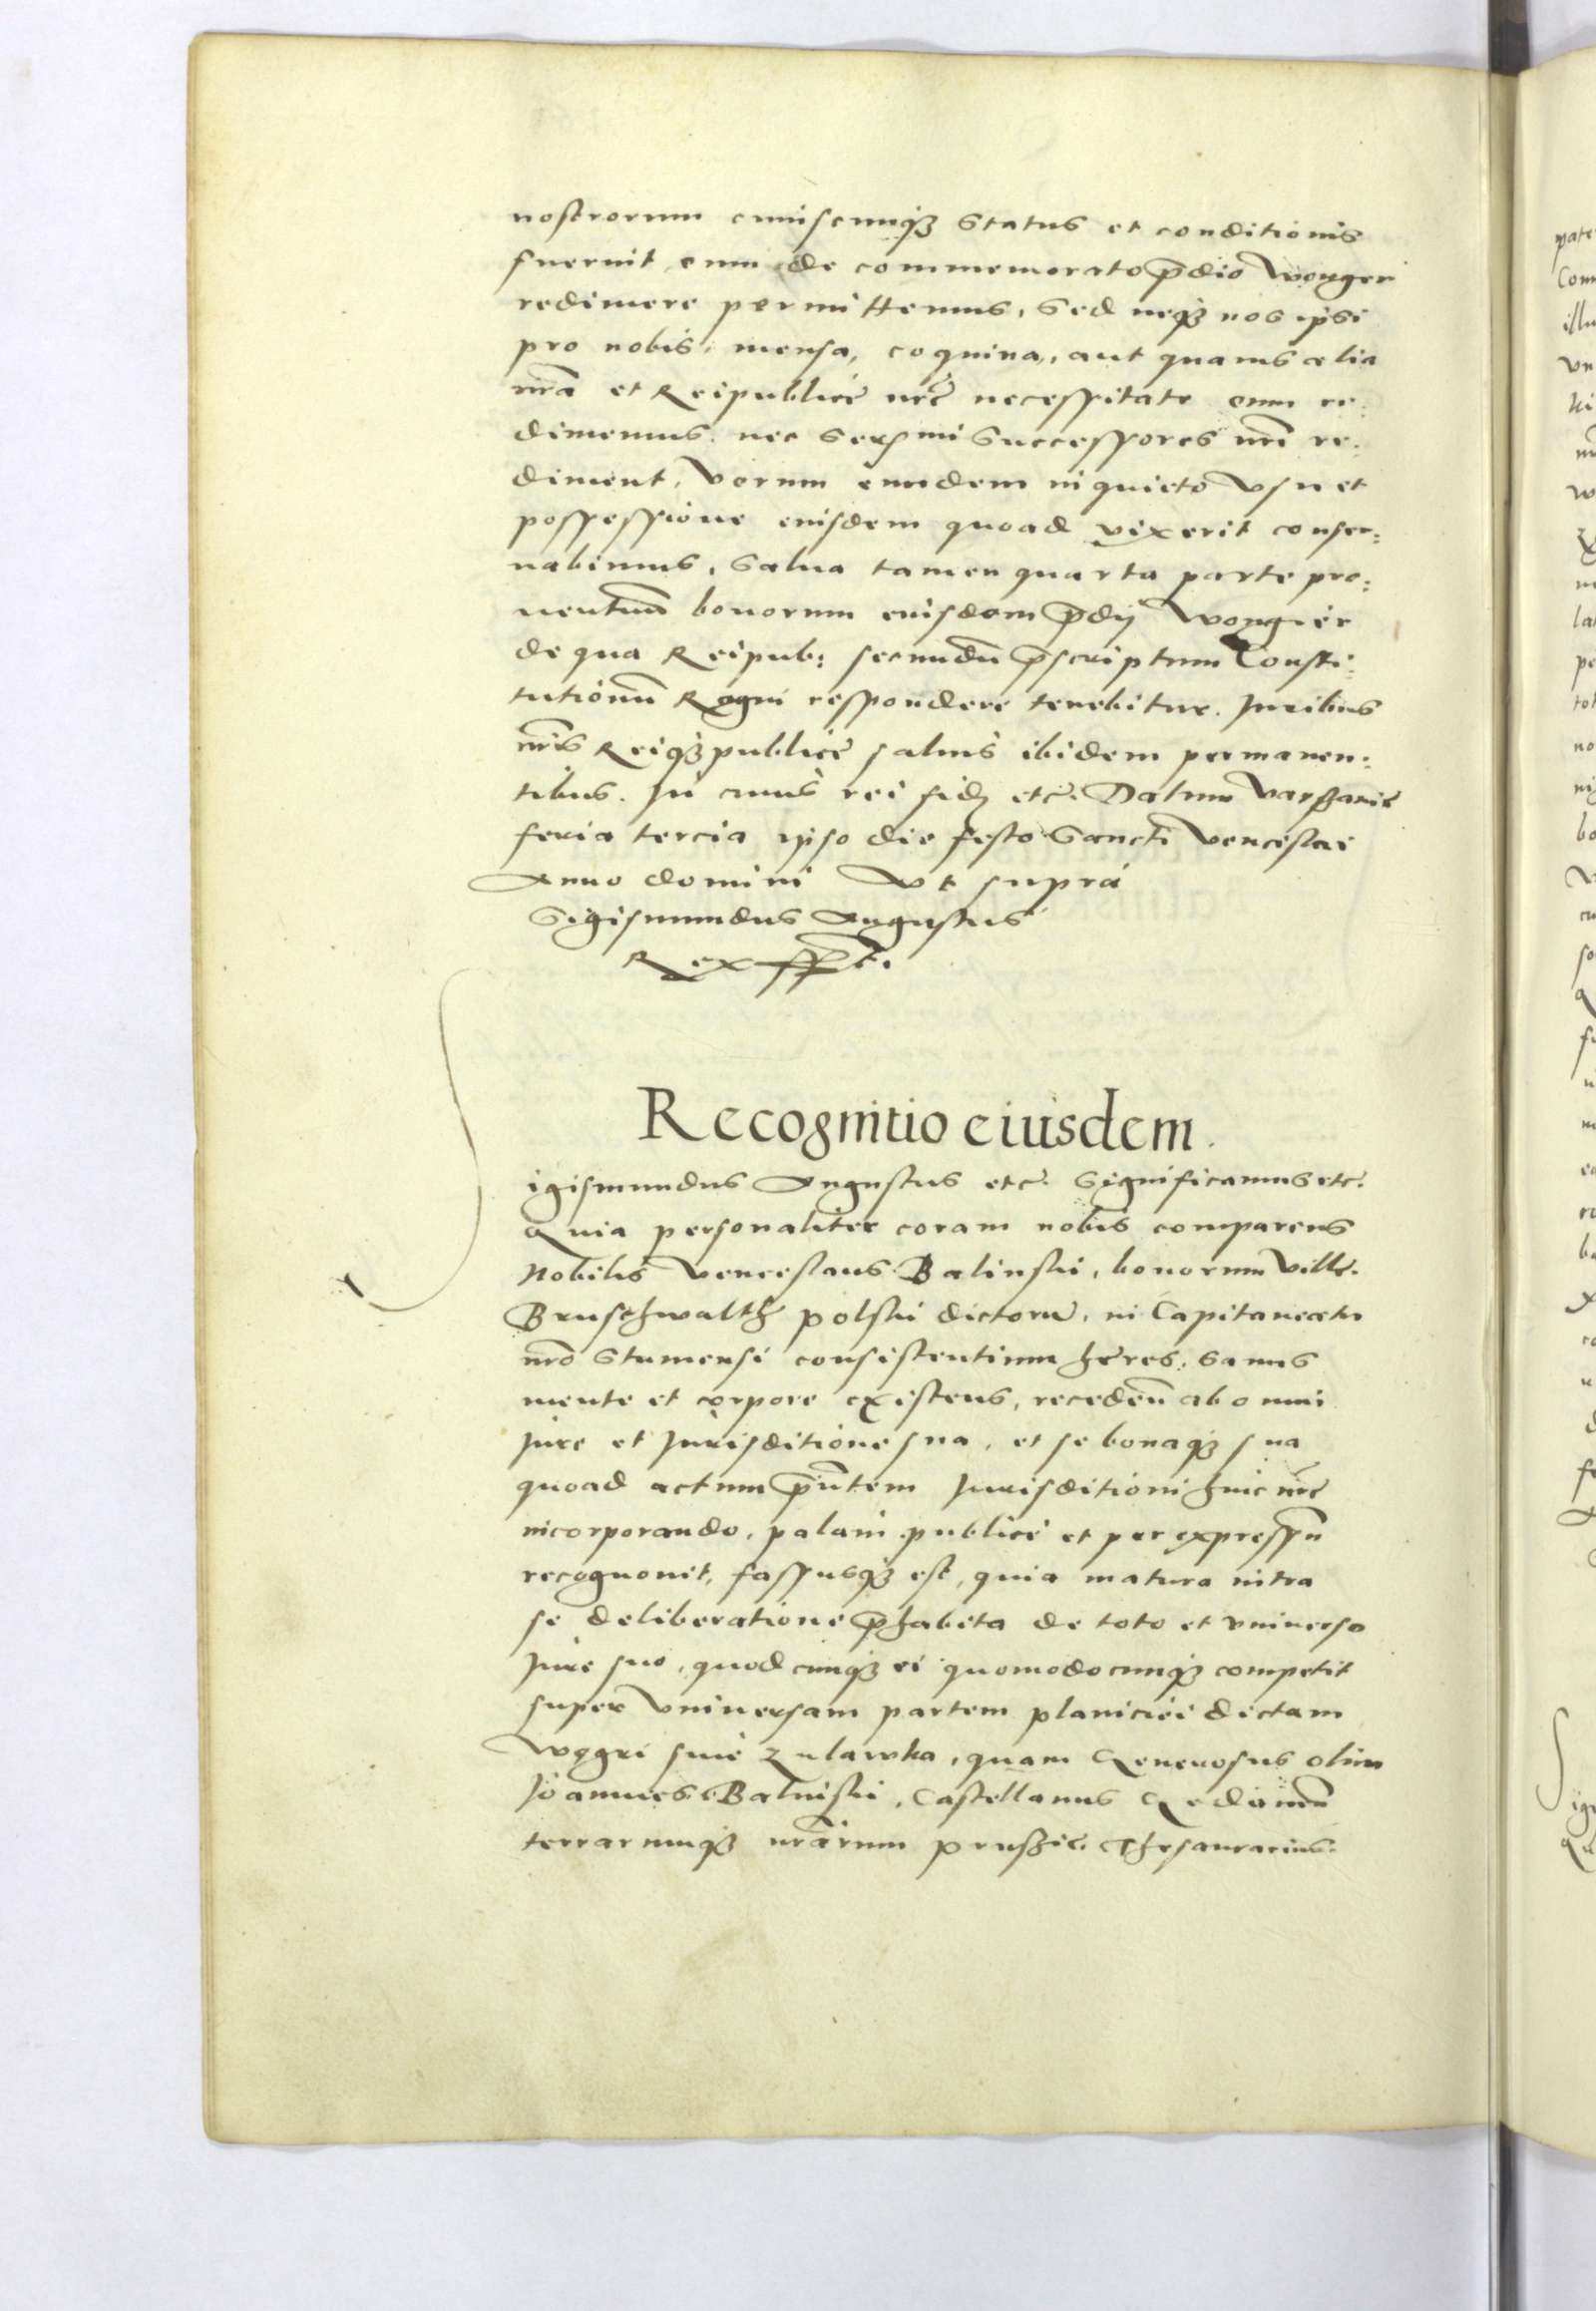 nostrorum cuiuscumq3 Status et conditionis
fuerint eum de commemorato p̄dio Wonger
redimere permittemus, Sed neq3 nos ipsi
pro nobis, mensa, coquina, aut quauis alia
nr̄a et Reipublice nr̄e necessitate eum re:
dimemus, nec Serssmi Successores nr̄i re:
diment, Verum eundem in quieto Vsu et
possessione eiusdem quoad vixerit conser:
uabimus, Salua tamen quarta parte pro:
uentuū bonorum eiusdem p̄dij Wongier
de qua Reipub: secundū p̄scriptum Consti:
tutionū Regni respondere tenebitur. Juribus
nr̄is Reiq3 publice saluis ibidem permanen:
tibus. In cuius rei fidē etc. Datum Varssauie
feria tercia ipso die festo Sancti Venceslai
Anno domini Vt supra
Sigismundus Augustus
Rex sspt.
Recognitio eiusdem.
Sigismundus Augustus etc. Significamus etc.
Quia personaliter coram nobis comparens
Nobilis Venceslaus Balinski, bonorum Ville
Bruschwalth polski dictorū, in Capitaneatu
nr̄o Stumensi consistentium heres, Sanus
mente et corpore existens, recedeñ ab omni
Jure et Jurisditione sua, et se bonaq3 sua
quoad actum pn̄tem Jurisditioni huic nr̄e
incorporando, palam publice et per expressū
recognouit, fassusq3 est, quia matura intra
se deliberatione p̄habita de toto et vniuerso
Jure suo, quodcunq3 ei quomodocunq3 competit
super Vniuersam partem planiciei dictam
Węgri siue Zulawka, quam Generosus olim
Joannes Balinski, Castellanus Gedaneñ
terrarumq3 nr̄arum prussie Thesaurarius